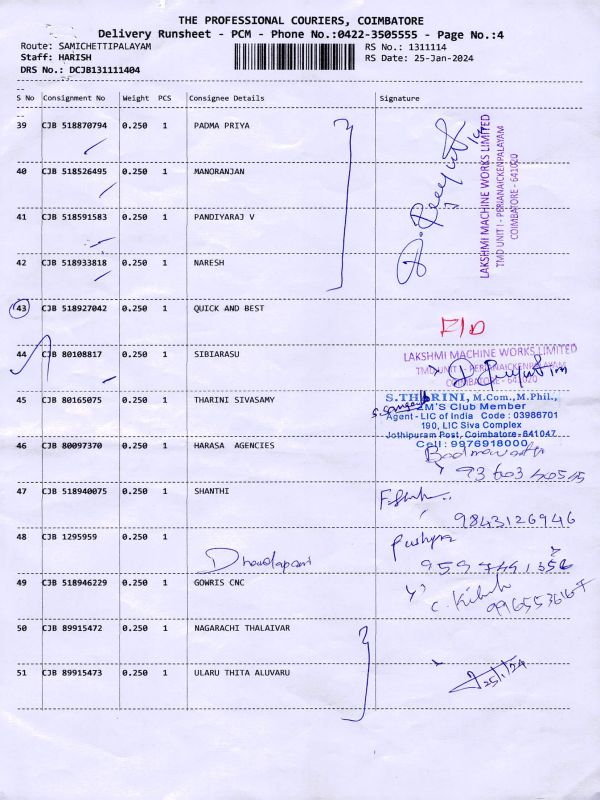 THE PROFESSIONAL COURIERS, COIMBATORE
Delivery Runsheet - PCM - Phone No.:0422-3505555 - Page No.:4
Route: SAMICHETTIPALAYAM
RS No.: 1311114
Staff: HARISH
RS Date: 25-Jan-2024
DRS No.: DCJB131111404
S No Consignment No Weight PCS Consignee Details Signature
39 CJB 518870794 0.250 1 PADMA PRIYA
40 CJB 518526495 0.250 1 MANORANJAN
41 CJB 518591583 0.250 1 PANDIYARAJ V
42 CJB 518933818 0.250 1 NARESH
LAKSHMI MACHINE WORKS LIMITED
TMD UNIT I - PERIANAICKENPALAYAM
COIMBATORE - 641020
43 CJB 518927042 0.250 1 QUICK AND BEST
44 CJB 80108817 0.250 1 SIBIARASU
LAKSHMI MACHINE WORKS LIMITED
TMD UNIT I - PERIANAICKENPALAYAM
COIMBATORE - 641020
45 CJB 80165075 0.250 1 THARINI SIVASAMY
S.THARINI, M.Com.,M.Phil.,
ZM'S Club Member
Agent - LIC of India Code : 03986701
190, LIC Siva Complex
Jothipuram Post, Coimbatore-641047
Cell : 9976918000
46 CJB 80097370 0.250 1 HARASA AGENCIES
47 CJB 518940075 0.250 1 SHANTHI
9843126946
48 CJB 1295959 0.250 1
Dhandapani
Pushpa
49 CJB 518946229 0.250 1 GOWRIS CNC
50 CJB 89915472 0.250 1 NAGARACHI THALAIVAR
51 CJB 89915473 0.250 1 ULARU THITA ALUVARU
25/1/24